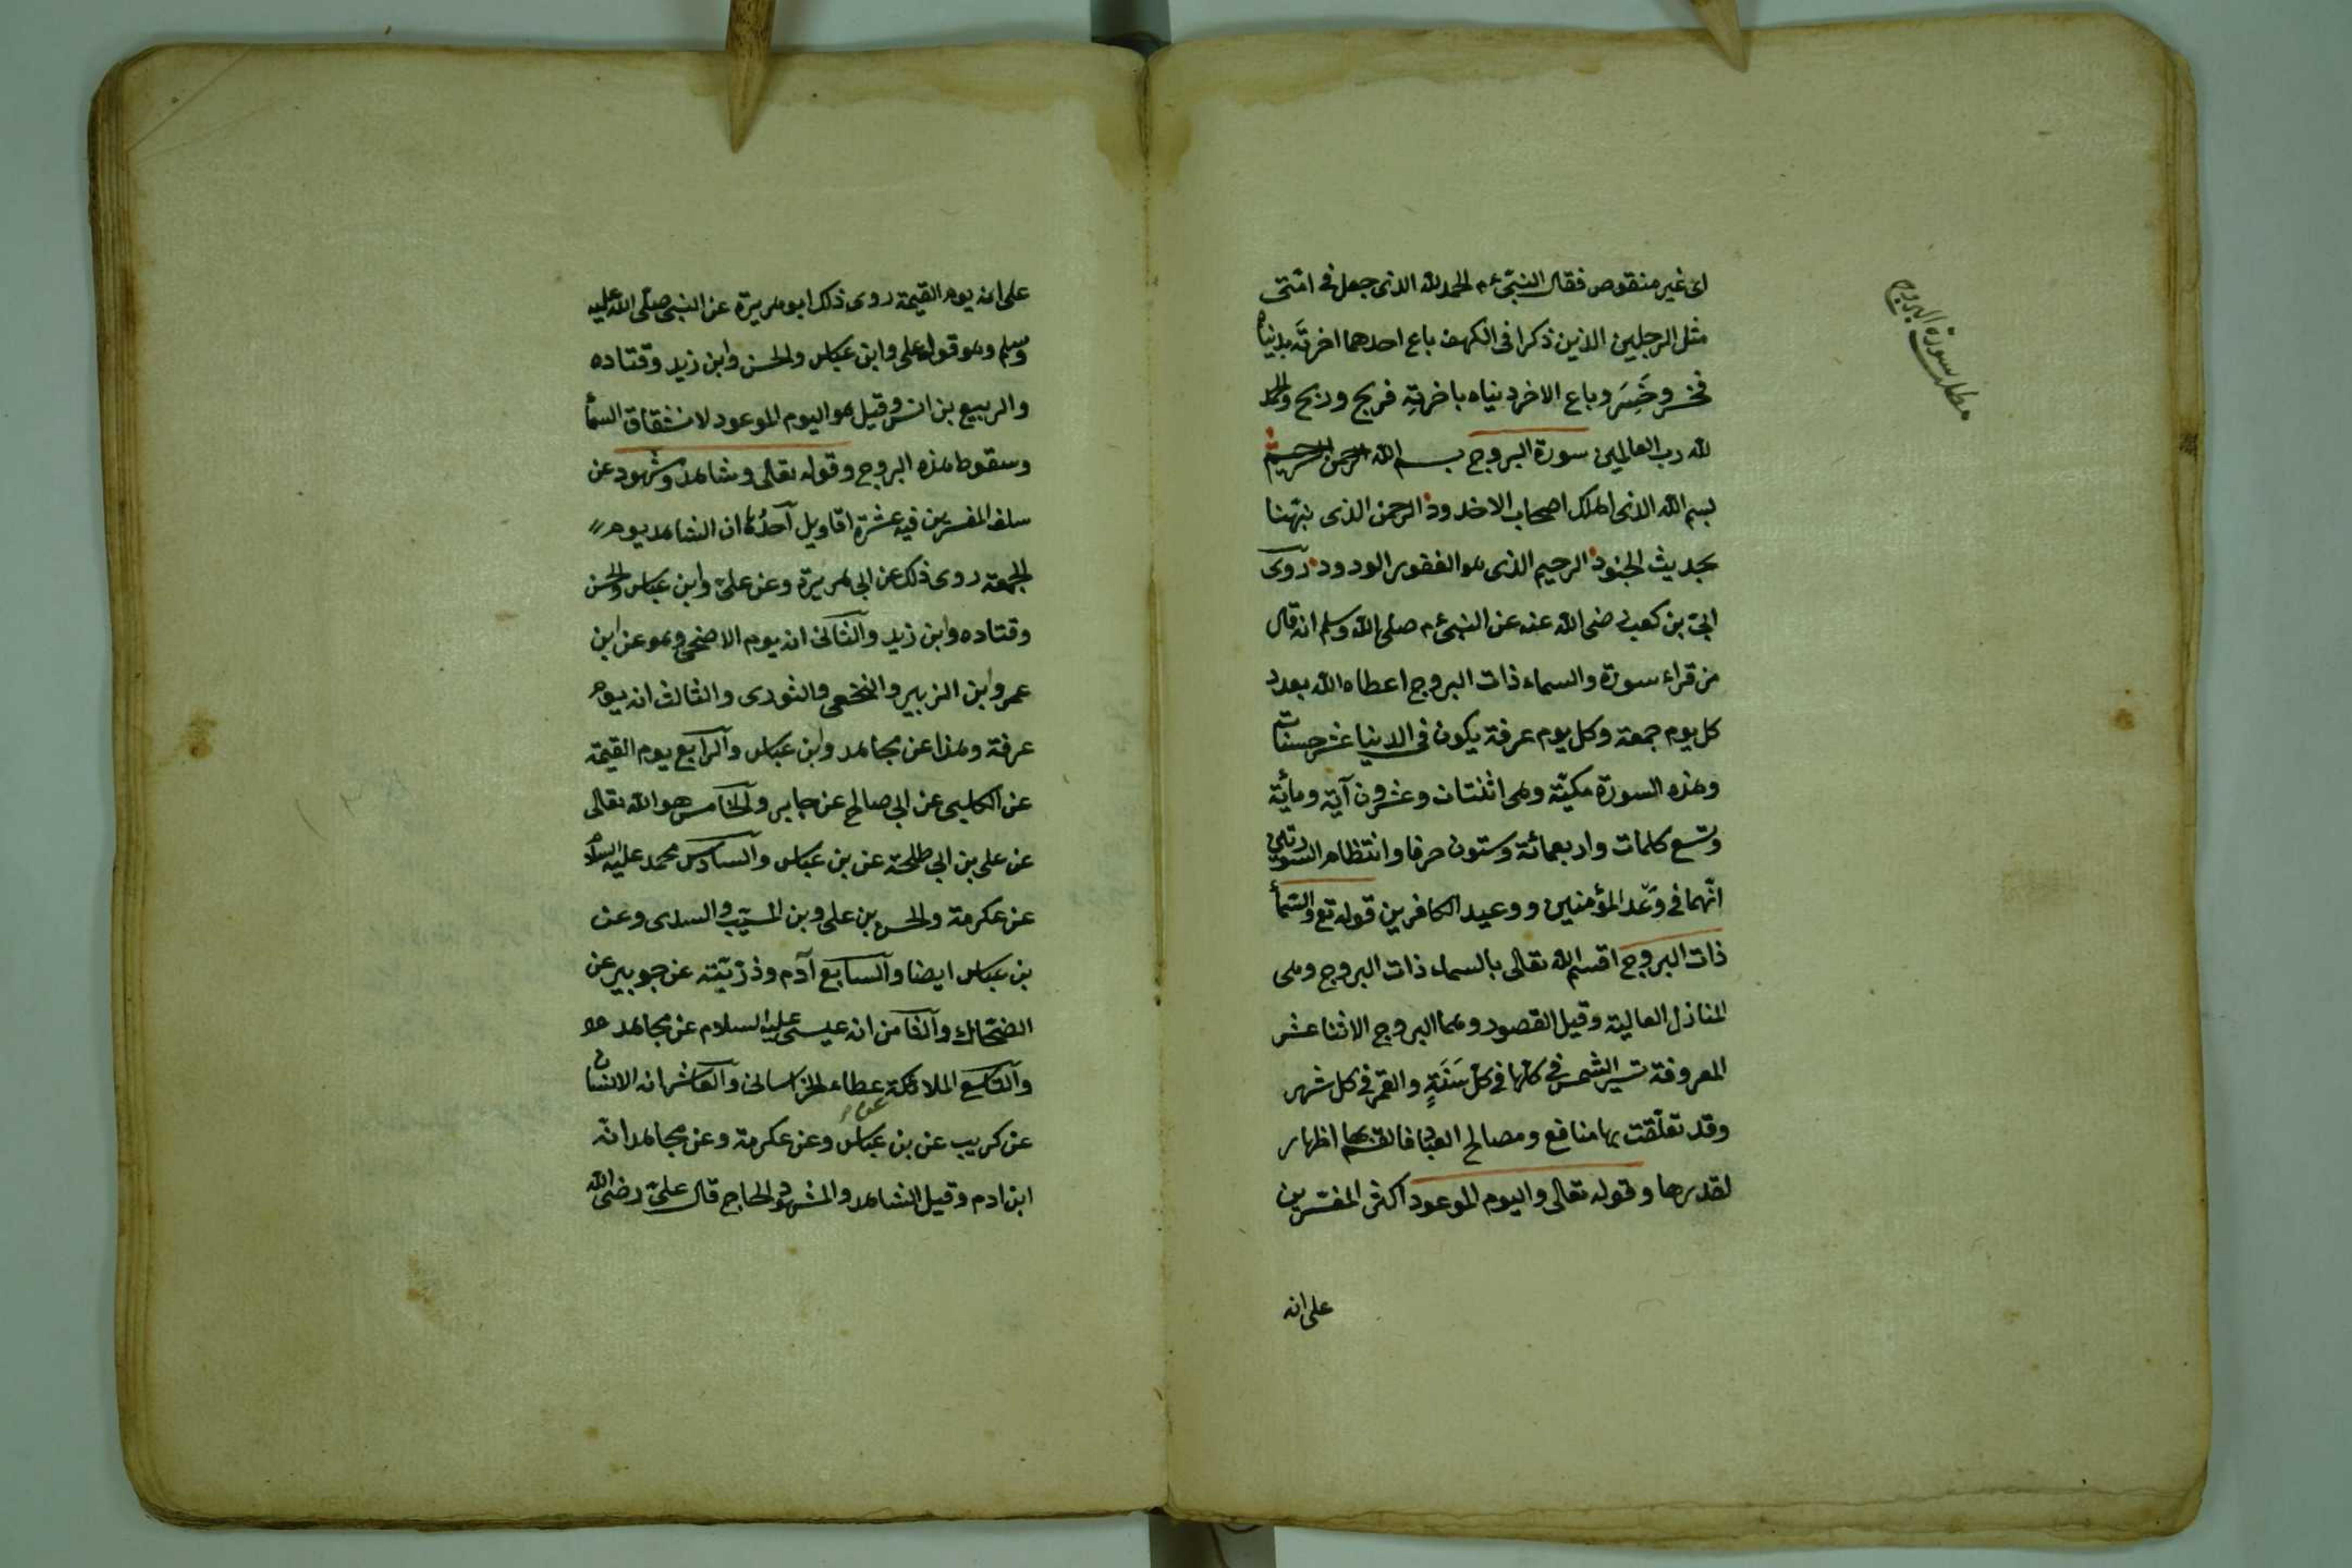 مطلب سورة البروج
اى غير منقوص فقال النبىّ ءم الحمد لله الذى جعل فى امّتى
مثل الرجلين الذين ذكرا فى الكهف باع احدهما اخرتَه بدنياه
فخسر وخَسِرَ وباع الاخر دنياه باخرتِه فربح وربح والحمد
لله رب العالمين سورة البروج بسم الله الرحمن الرحيم
بسم الله الذى اهلك اصحاب الاخدود الرحمن الذى نبّهنا
بحديث الجنود الرحيم الذى هو الغفور الودود روى
ابىّ بن كعب رضى الله عنه عن النبى ءم صلى الله وسلم انه قال
من قراء سورة والسماء ذات البروج اعطاه الله بعدد
كل يوم جمعة وكل يوم عرفة يكون فى الدنيا عشر حسنات
وهذه السورة مكيّة وهى اثنتان وعشرون آية ومأية
وتسع كلمات واربعمائة وستون حرفا وانتظام السورتين
انّهما فى وَعْد المؤمنين ووعيد الكافرين قوله تع والسمأ
ذات البروج اقسم الله تعالى بالسماء ذات البروج وهى
المنازل العالية وقيل القصور وهما البروج الاثنا عشر
المعروفة تسير الشمس فى كلها فى كلّ سَنَةٍ والقمر فى كل شهر
وقد تعلّقت بها منافع ومصالح العباد فالقسم بها اظهار
لقدرها وقوله تعالى واليوم الموعود اكثر المفسّرين
على انه
على انه يوم القيمة روى ذلك ابو هريرة عن النبى صلّى الله عليه
وسلم وهو قول على وابن عباس والحسن وابن زيد وقتاده
والربيع بن انس وقيل هو اليوم الموعود لانشقاق السمأ
وسقوط هذه البروج وقوله تعالى وشاهد ومشهود عن
سلف المفسرين فيه عشرة اقاويل آحدُها ان الشاهد يوم
الجمعة روى ذلك عن ابى هريرة وعن علىّ وابن عباس والحسن
وقتاده وابن زيد والثانى انه يوم الاضحى وهو عن ابن
عمر وابن الزبير والنخعى والثورى والثالث انه يوم
عرفة وهذا عن مجاهد وابن عباس والرابع يوم القيمة
عن الكلبى عن ابى صالح عن جابر والخامس هو الله تعالى
عن على بن ابى طلحة عن بن عباس والسادس محمد عليه السلام
عن عكرمة والحسن بن على وبن المسيّب والسدى وعن
بن عباس ايضا والسابع آدم وذرّيّته عن جويبر عن
الضحّاك والثامن انه عيسى عليه السلام عن مجاهد
والتاسع الملائكة عطاء الخراسانى والعاشر انه الانسان
عن كريب عن بن عباس وعن عكرمة وعن مجاهد انّه
ابن ادم وقيل الشاهد والمشهود الحاج قال علىّ رضى الله